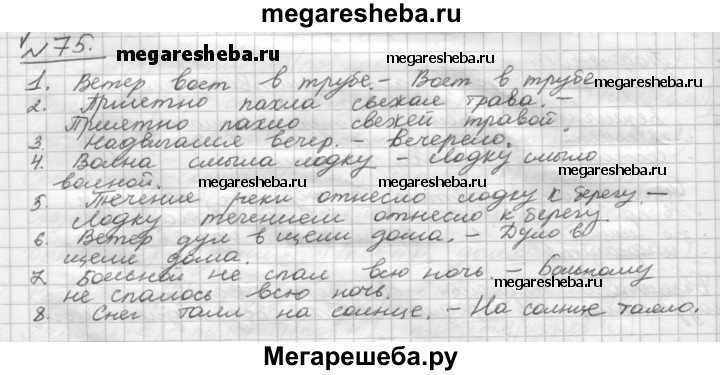 megaresheba.ru
№ 75.
megaresheba.ru
1. Ветер воет в трубе. – Воет в трубе
megaresheba.ru
2. Приятно пахла свежая трава. –
Приятно пахло свежей травой.
3. Надвигался вечер. – Вечерело.
megaresheba.ru
4. Волна смыла лодку – Лодку смыло
волной.
megaresheba.ru
megaresheba.ru
5. Течение реки отнесло лодку к берегу. –
Лодку течением отнесло к берегу.
6. Ветер дул в щели дома. – Дуло в
щели дома.
7. Больной не спал всю ночь – Больному
не спалось всю ночь.
8. Снег таял на солнце. – На солнце таяло.
Мегарешеба.ру